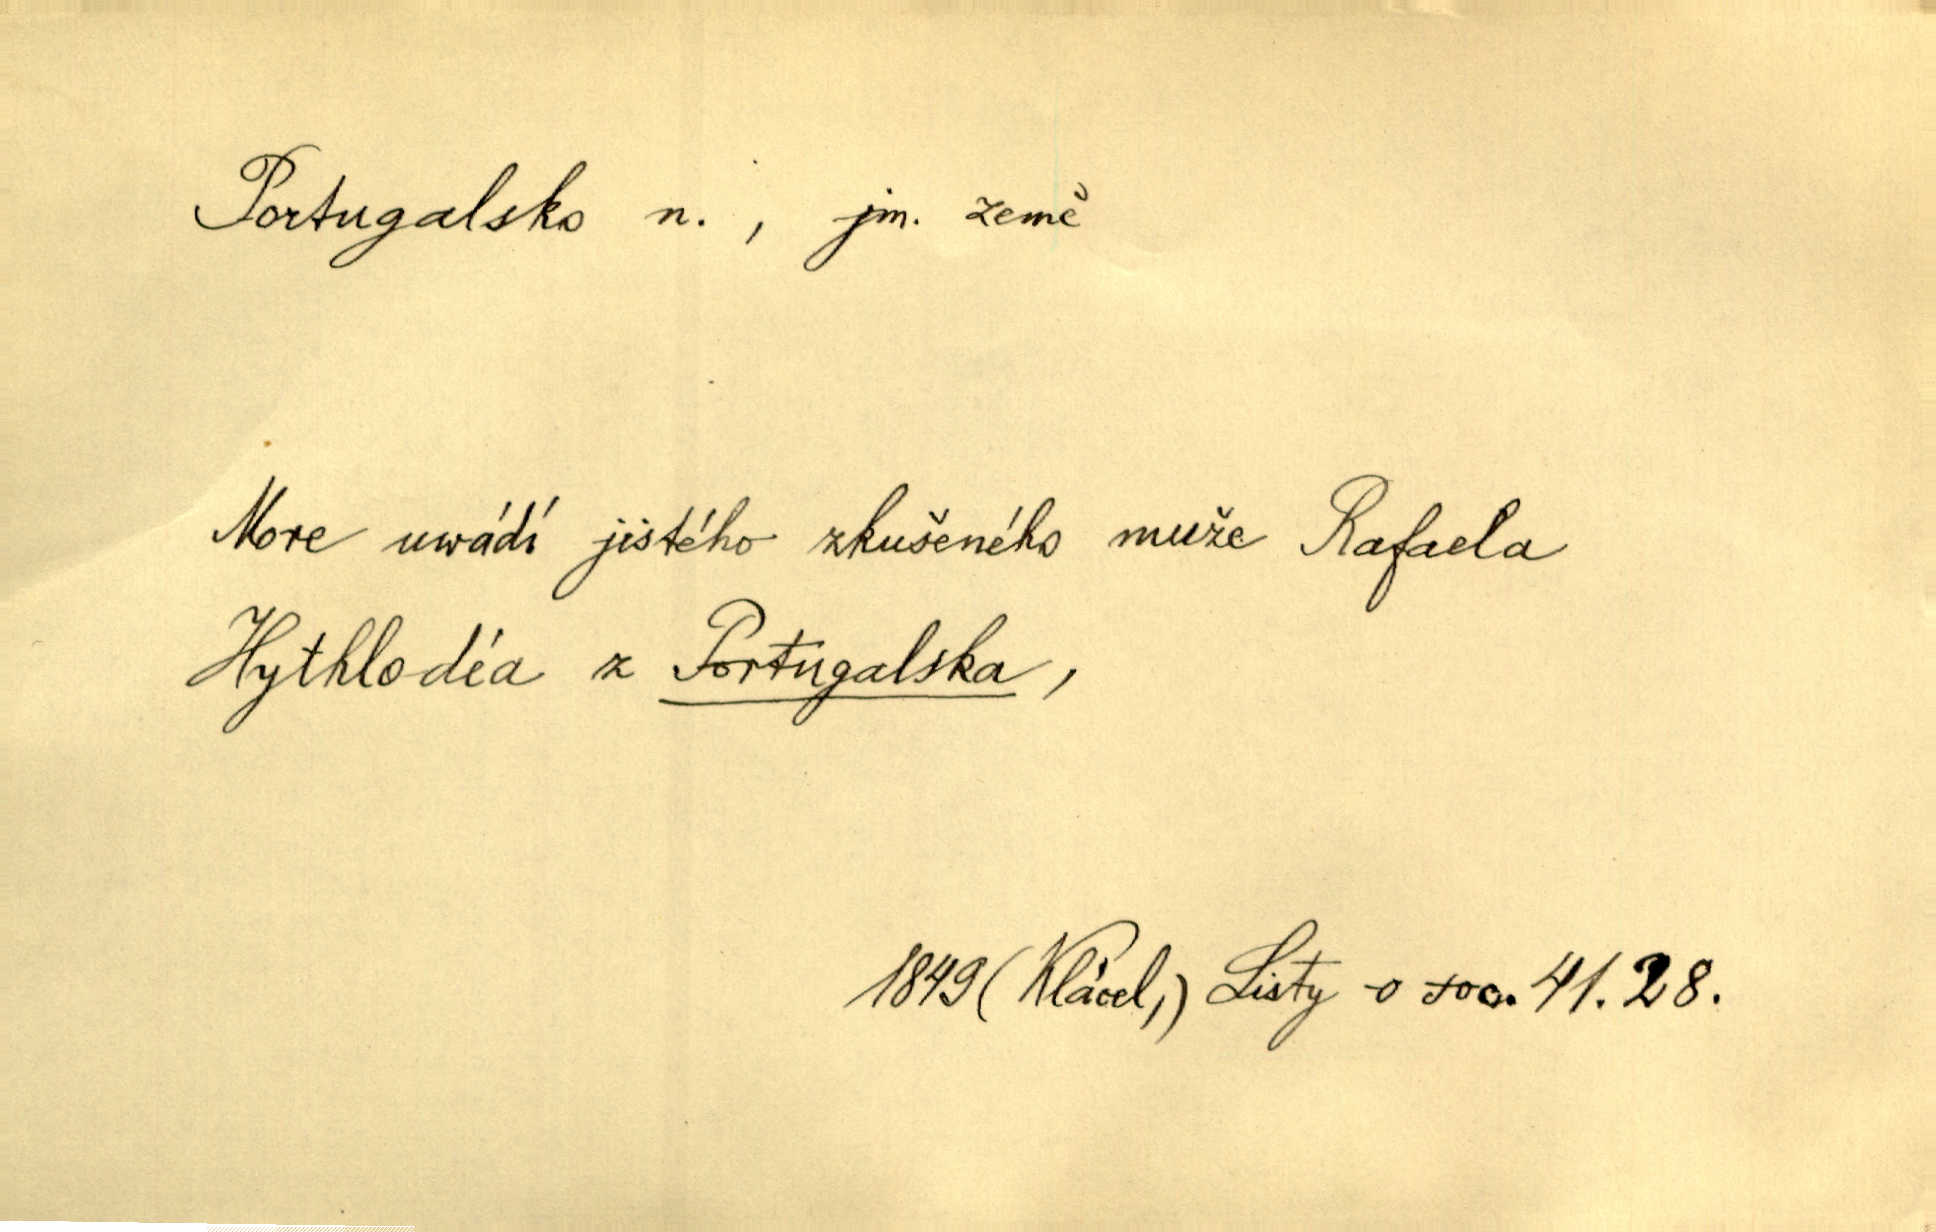 Portugalsko n. , jm. země
More uwádí jistého zkušeného muže Rafaela
Hythlodéa z Portugalska,
1849 (Klácel,) Listy o soc. 41. 28.